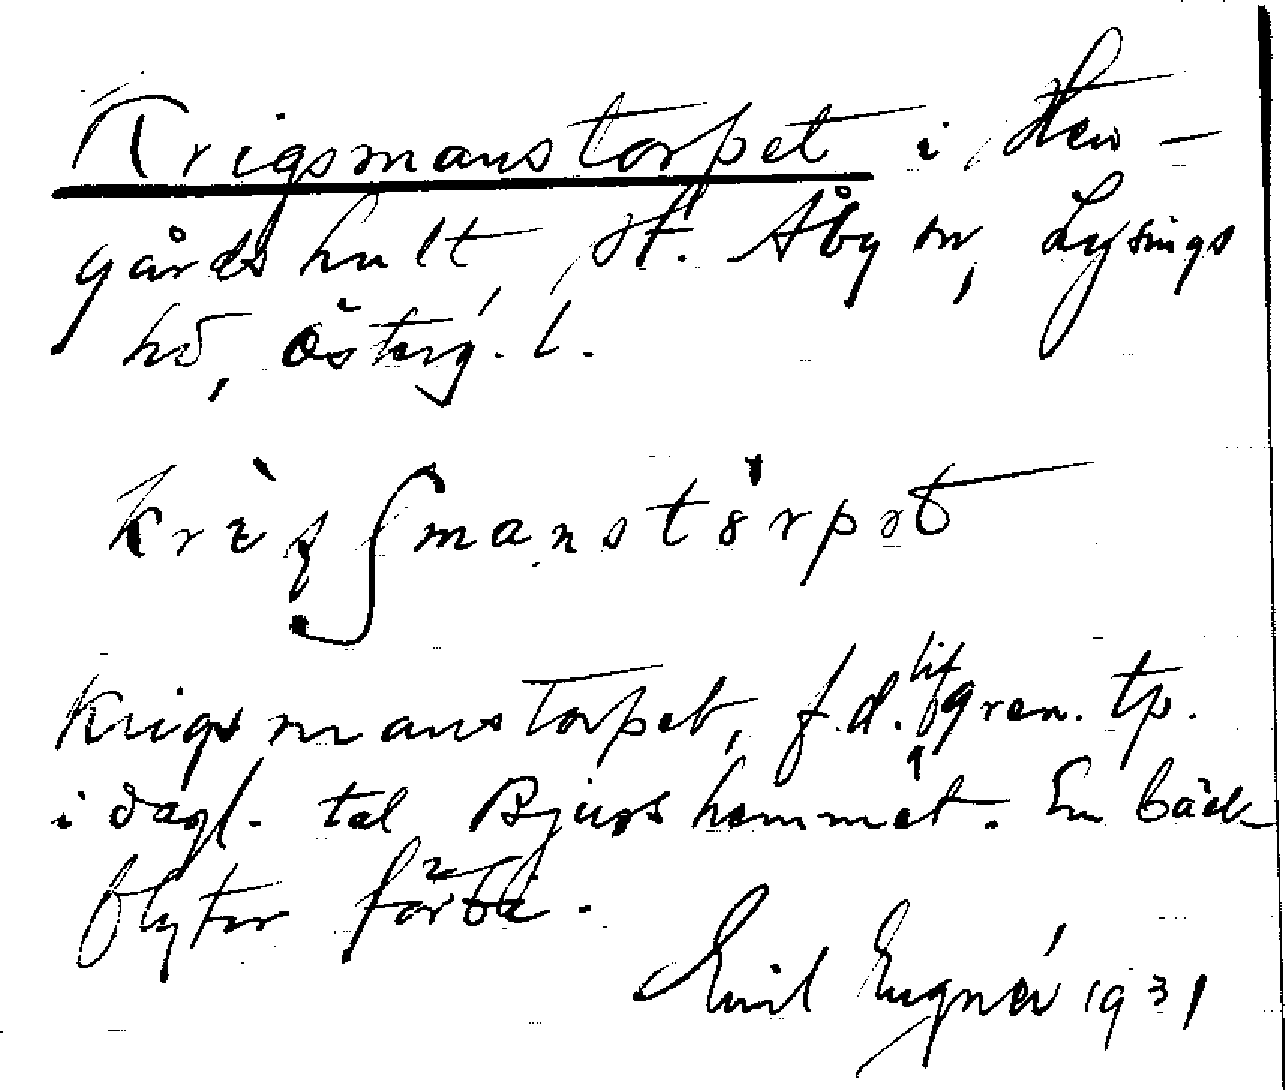 Krigsmanstorpet i Hen-
gårdshult, St. Åby sn, Lysings
hd, Österg. l.
Krigsmanstorpet, f.d. lifgren. tp.
i dagl. tal Bjurshemmet. En bäck
flyter förbi.
Emil Eugnér 1931